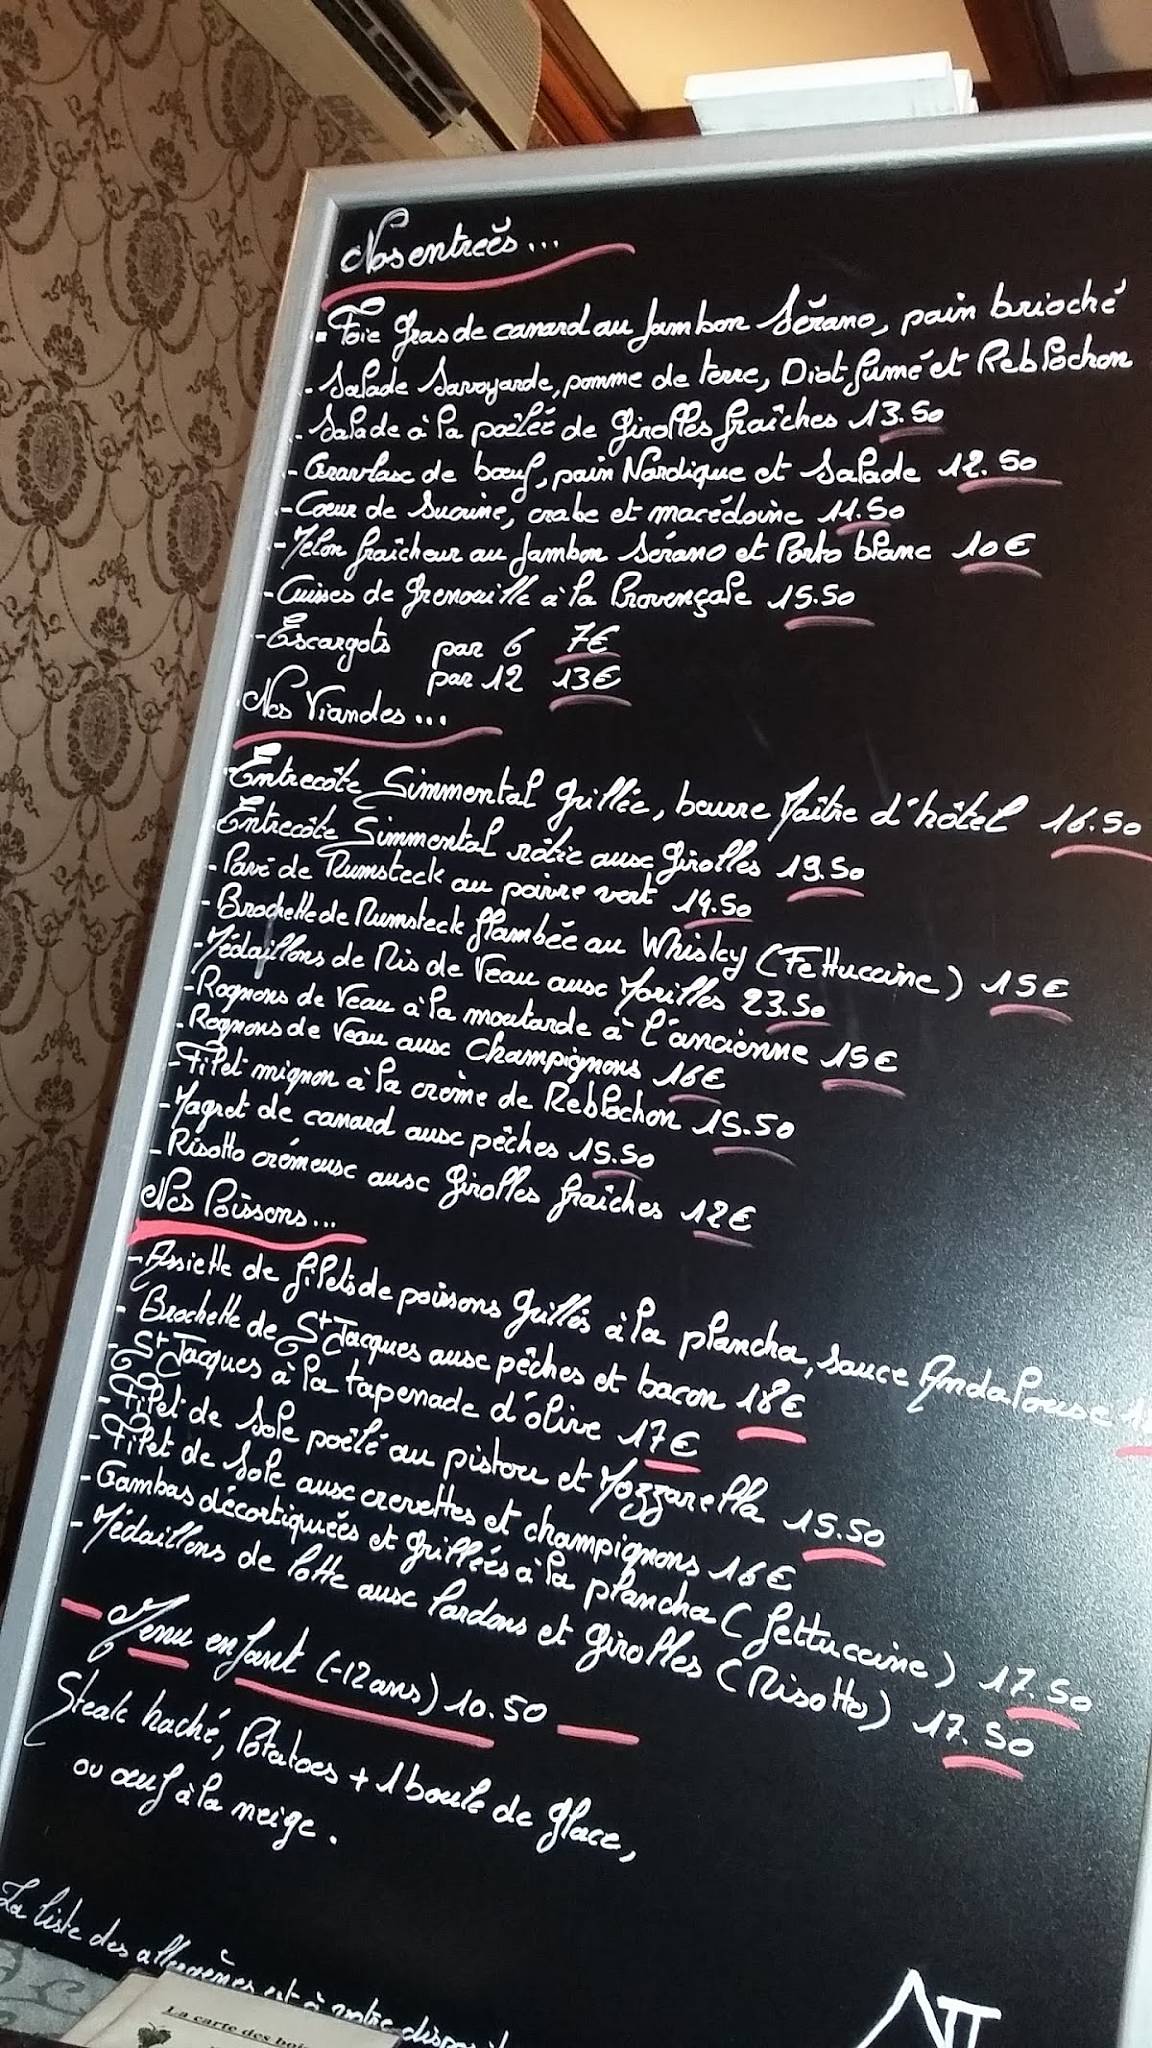 Nos entrées...
- Foie Gras de canard au Jambon Sérano, pain brioché
- Salade Savoyarde, pomme de terre, Diot fumé et Reblochon
- Salade à la poêlée de Girolles fraîches 13.50
- Gravlaxe de bœuf, pain Nordique et Salade 12.50
- Cœur de Sucrine, crabe et macédoine 11.50
- Melon fraîcheur au Jambon Sérano et Porto blanc 10€
- Cuisses de Grenouille à la Provençale 15.50
- Escargots par 6 7€
par 12 13€
Nos Viandes...
- Entrecôte Simmental Grillée, beurre Maître d'hôtel 16.50
- Entrecôte Simmental rôtie aux Girolles 19.50
- Pavé de Rumsteck au poivre vert 14.50
- Brochette de Rumsteck flambée au Whisky (Fettuccine) 15€
- Médaillons de Ris de Veau aux Morilles 23.50
- Rognons de Veau à la moutarde à l'ancienne 15€
- Rognons de Veau aux Champignons 16€
- Filet mignon à la crème de Reblochon 15.50
- Magret de canard aux pêches 15.50
- Risotto crémeux aux Girolles fraîches 12€
Nos Poissons...
- Assiette de filets de poissons Grillés à la plancha, sauce Andalouse
- Brochette de St Jacques aux pêches et bacon 18€
- St Jacques à la tapenade d'olive 17€
- Filet de Sole poêlé au pistou et Mozzarella 15.50
- Filet de Sole aux crevettes et champignons 16€
- Gambas décortiquées et Grillées à la plancha (fettuccine) 17.50
- Médaillons de lotte aux lardons et Girolles (Risotto) 17.50
Menu enfant (-12ans) 10.50
Steak haché, Potatoes + 1 boule de Glace,
ou œuf à la neige.
La liste des allergènes est à votre
La carte des